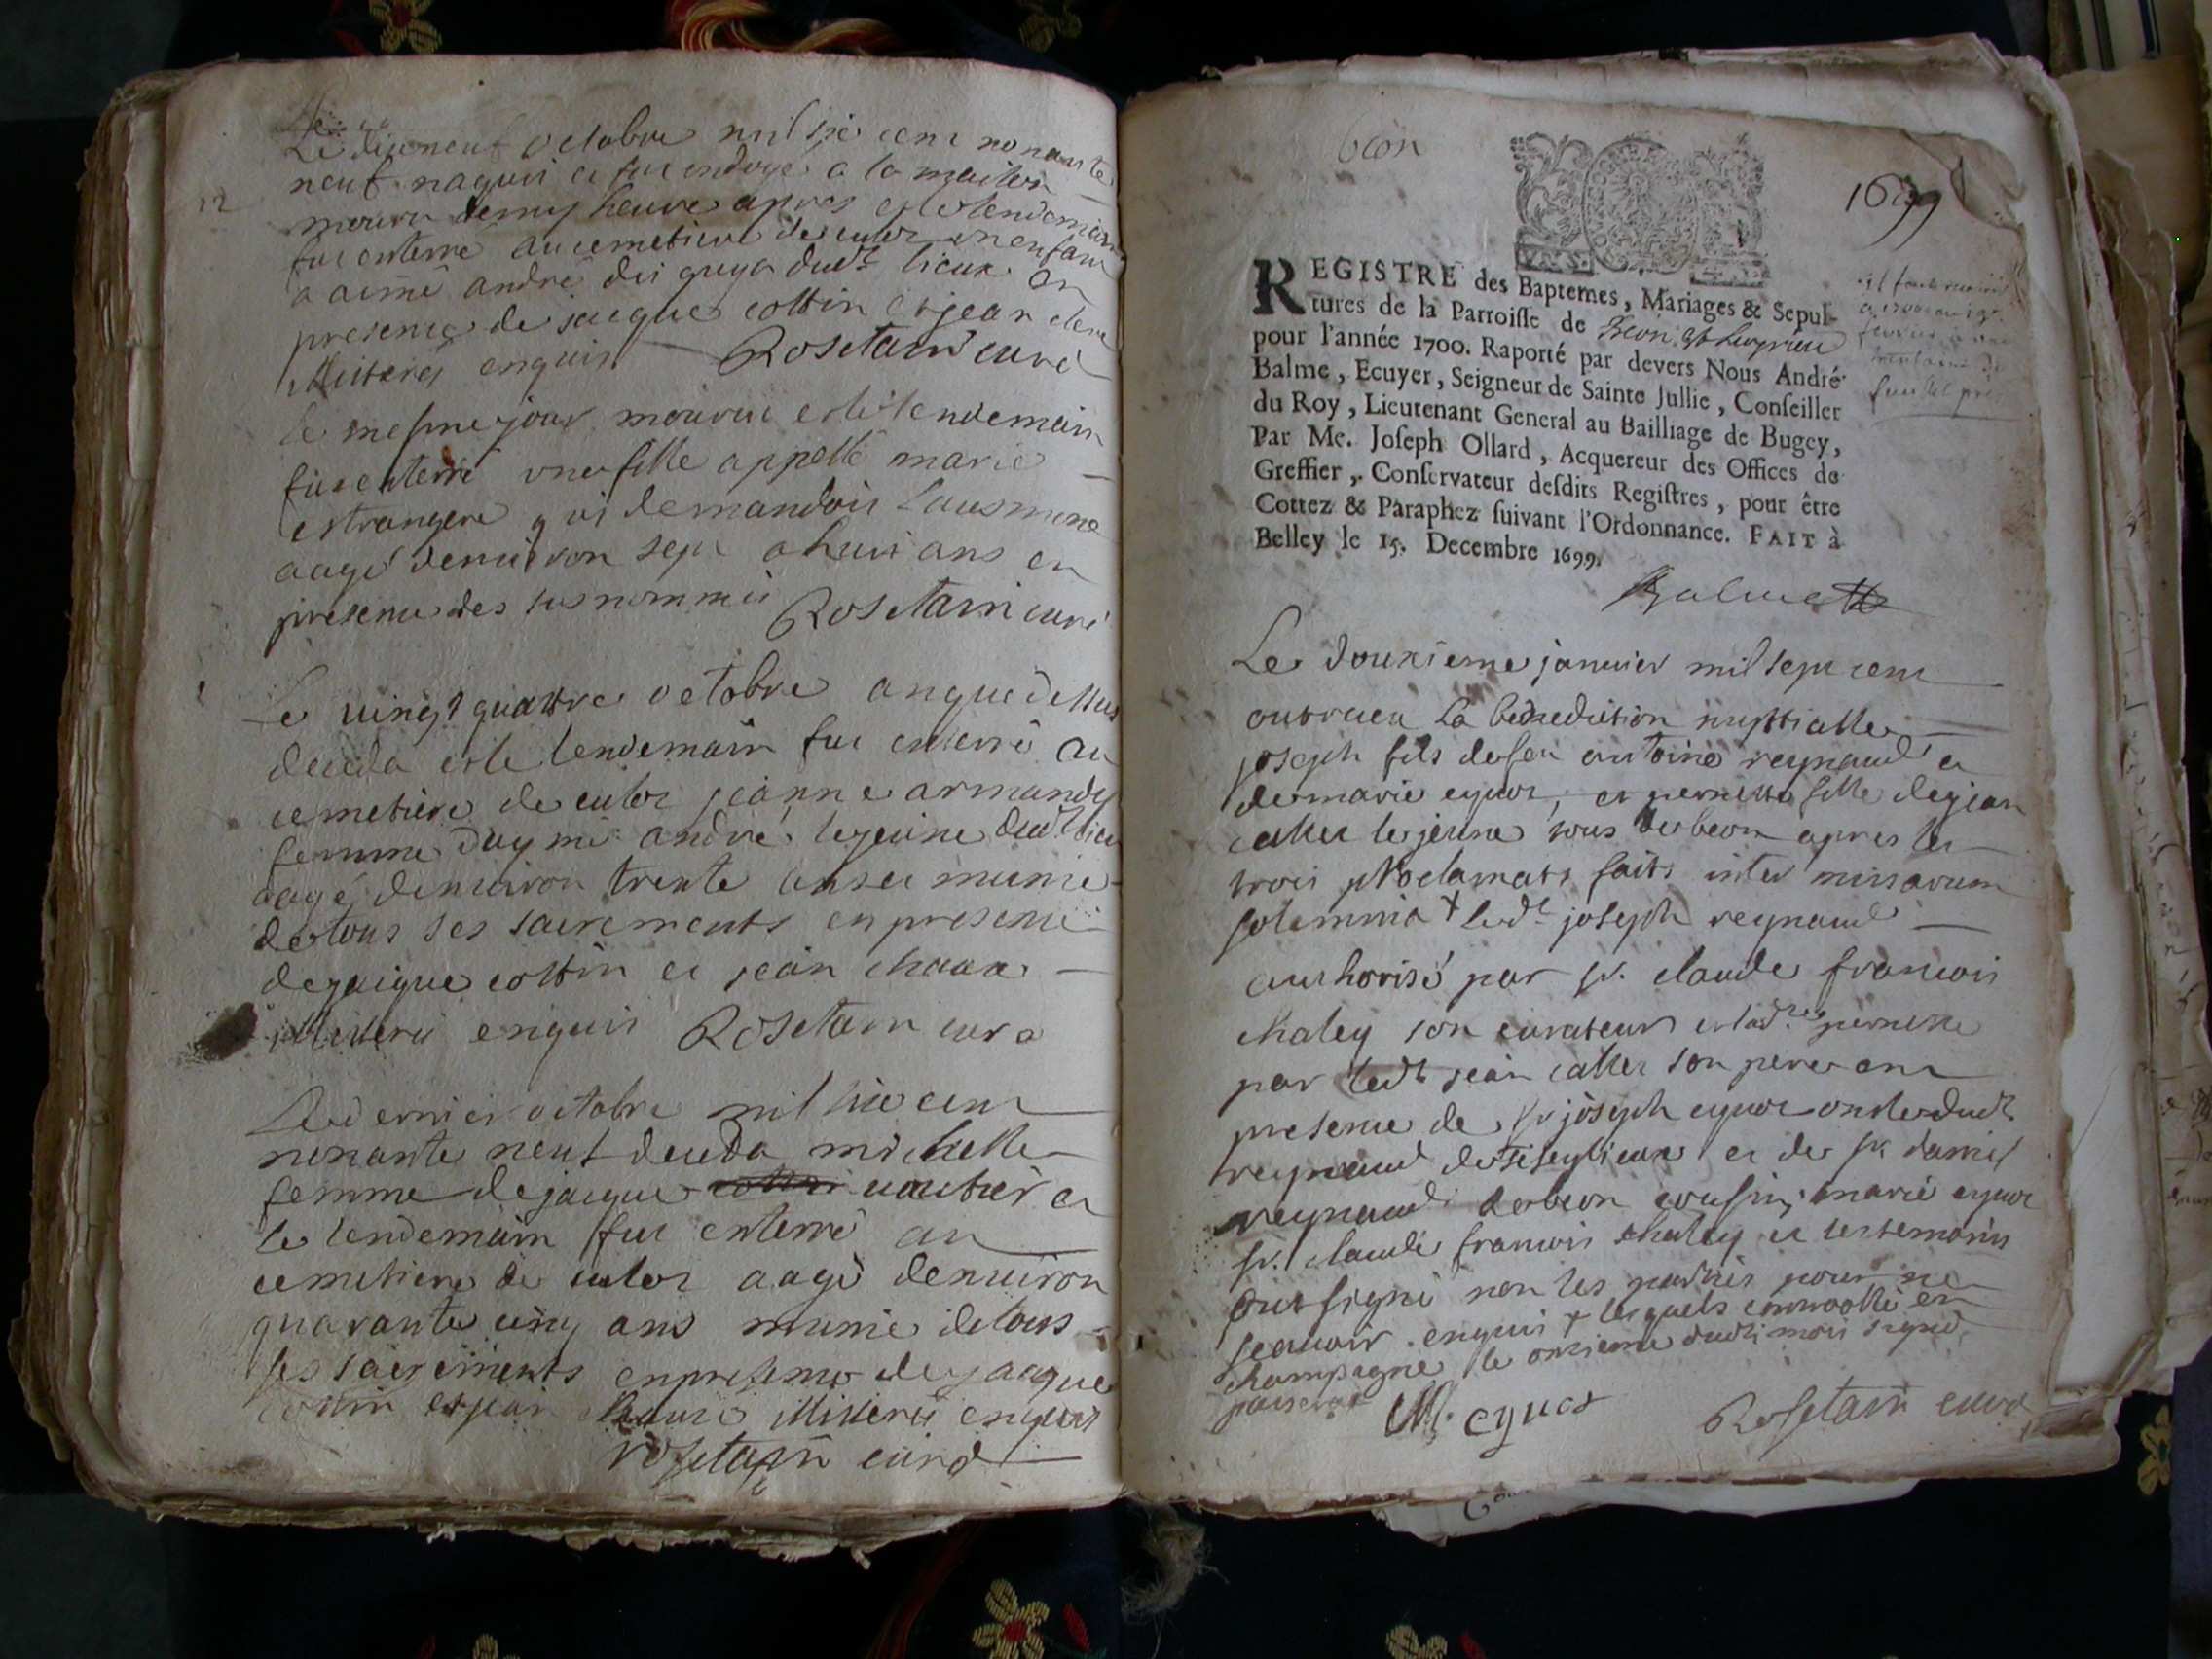 Le dixneuf octobre mil six cent nonante
neuf naquit et fut endoyé a la maison
12
mourut demy heure apres et le lendemain
fut enterré au cemetiere de culoz un enfant
a aimé andré dit guya dudt lieux en
presence de jacque cottin et jean
illiteres enquis Rosetain curé
le mesme jour mourut et le lendemain
fut enterré une fille appellé marie
estrangere qui demandoit Lausmune
aagé denuiron sept a huit ans en
presence des susnommés Rosetain curé
Le vingt quattre octobre an que dessus
deceda et le lendemain fut enterré au
cemetiere de culoz jeanne armand
femme daymé andré le jeune dudt lieu
aagé denuiron trente ans et munie
de tous ses sacrements en presence
de jacque cottin et jean chaux
illiteres enquis Rosetain curé
Le dernier octobre mil six cent
nonante neuf deceda michelle
femme de jacque vautier et
le lendemain fut enterré au
cemetiere de culoz aagé denuiron
quarante cinq ans munie de tous
ses sacrements en presence de jacque
cottin et jean chaux illiteres enquis
rosetain curé
beon
1699
REGISTRE des Baptemes, Mariages & Sepul-
tures de la Parroisse de Beon et
pour l'année 1700. Raporté par devers Nous André
Balme, Ecuyer, Seigneur de Sainte Jullie, Conseiller
du Roy, Lieutenant General au Bailliage de Bugey,
Par Me. Joseph Ollard, Acquereur des Offices de
Greffier, Conservateur desdits Registres, pour être
Cottez & Paraphez suivant l'Ordonnance. FAIT à
Belley le 15. Decembre 1699.
Balme
Le douxieme januier mil sept cent
ont receu La benediction nuptialle
joseph fils de feu antoine reynaud et
de marie eynoz, et pernette fille de jean
callet le jeune tous de beon apres les
trois proclamats faits inter missarum
solemnia + ledt joseph reynaud
authorisé par sr. claude francois
chaley son curateur et ladte pernette
par ledt jean callet son pere en
presence de sr joseph eynoz oncle dudt
reynaud de et de sr daniel
reynaud de beon cousin, marie eynoz
sr. claude francois chaley et les temoins
ont signé non les parties pour ne
scauoir enquis + lesquels en
champagne le onzieme dudt mois signé
M. eynoz Rosetain curé